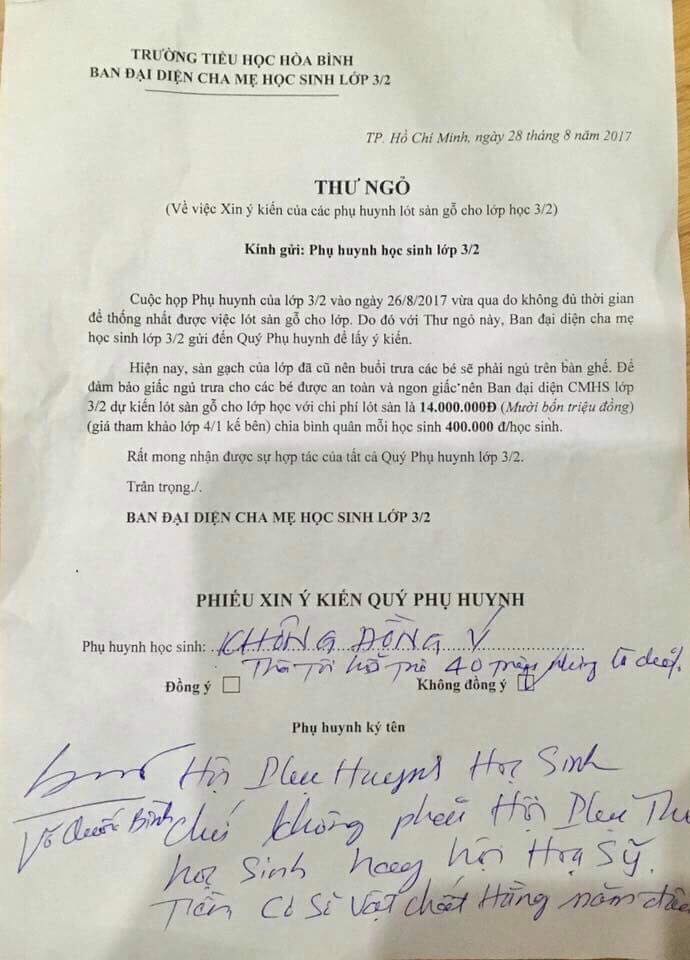 TRƯỜNG TIỂU HỌC HÒA BÌNH
BAN ĐẠI DIỆN CHA MẸ HỌC SINH LỚP 3/2
TP. Hồ Chí Minh, ngày 28 tháng 8 năm 2017
THƯ NGỎ
(Về việc Xin ý kiến của các phụ huynh lót sàn gỗ cho lớp học 3/2)
Kính gửi: Phụ huynh học sinh lớp 3/2
Cuộc họp Phụ huynh của lớp 3/2 vào ngày 26/8/2017 vừa qua do không đủ thời gian
để thống nhất được việc lót sàn gỗ cho lớp. Do đó với Thư ngỏ này, Ban đại diện cha mẹ
học sinh lớp 3/2 gửi đến Quý Phụ huynh để lấy ý kiến.
Hiện nay, sàn gạch của lớp đã cũ nên buổi trưa các bé sẽ phải ngủ trên bàn ghế. Để
đảm bảo giấc ngủ trưa cho các bé được an toàn và ngon giấc nên Ban đại diện CMHS lớp
3/2 dự kiến lót sàn gỗ cho lớp học với chi phí lót sàn là 14.000.000Đ (Mười bốn triệu đồng)
(giá tham khảo lớp 4/1 kế bên) chia bình quân mỗi học sinh 400.000 đ/học sinh.
Rất mong nhận được sự hợp tác của tất cả Quý Phụ huynh lớp 3/2.
Trân trọng./.
BAN ĐẠI DIỆN CHA MẸ HỌC SINH LỚP 3/2
PHIẾU XIN Ý KIẾN QUÝ PHỤ HUYNH
Phụ huynh học sinh: KHÔNG ĐỒNG Ý
Tôi hỗ trợ 40
Đồng ý Không đồng ý
Phụ huynh ký tên
Hội Phụ Huynh Học Sinh
Võ Quốc Bình
chứ không phải Hội Phụ Thu
học Sinh hay hội Họa Sỹ.
Tiền Cơ Sở Vật chất Hằng năm đâu